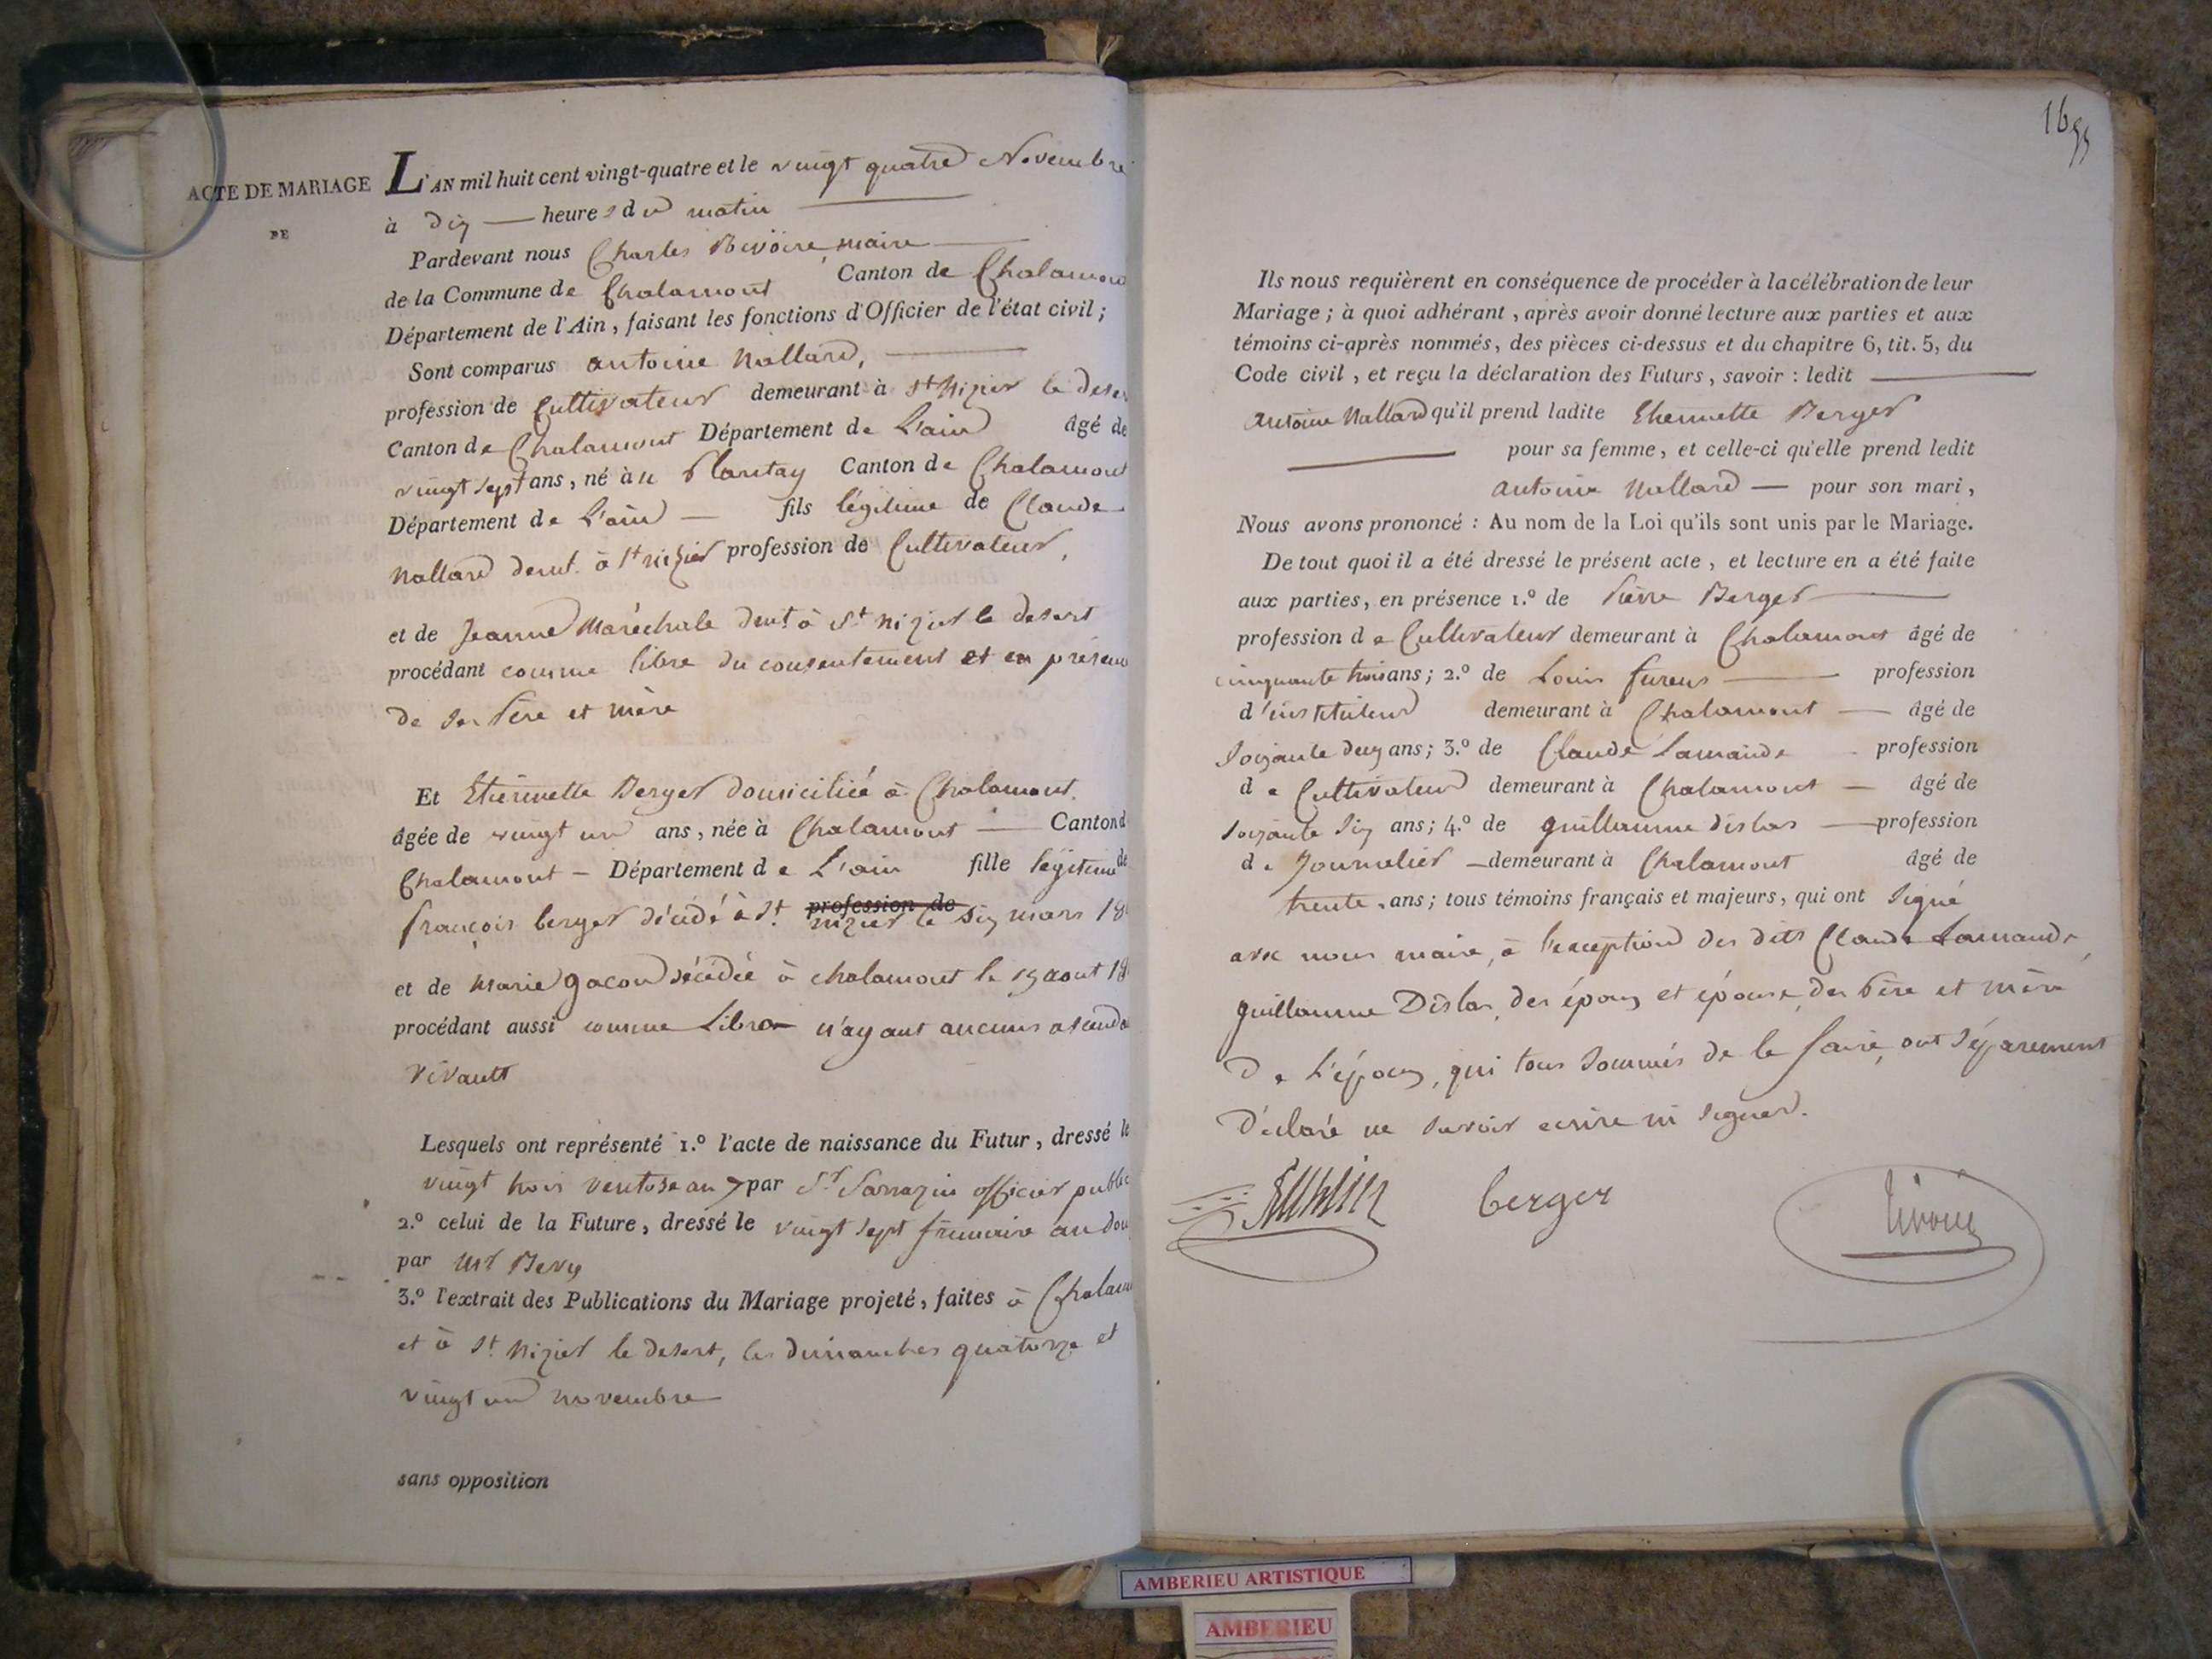 ACTE DE MARIAGE
DE
L'AN mil huit cent vingt-quatre et le vingt quatre Novembre
à dix — heures du matin —
Pardevant nous Charles Rivoire, maire —
de la Commune de Chalamont Canton de Chalamont
Département de l'Ain, faisant les fonctions d'Officier de l'état civil ;
Sont comparus antoine Nallard, —
profession de Cultivateur demeurant à St Nizier le deser
Canton de Chalamont Département de L'ain âgé de
vingt sept ans, né àu Plantay Canton de Chalamont
Département de L'ain — fils légitime de Claude
Nallard demt. à St nizier profession de Cultivateur,
et de Jeanne Maréchale demt à St nizier le desert
procédant comme libre du consentement et en présence
de ses Père et mère
Et Etiennette Berger domiciliée à Chalamont.
âgée de vingt un ans, née à Chalamont — Canton d
Chalamont — Département de L'ain fille légitime de
françois berger décédé à St. profession de nizier le six mars 18
et de Marie gacon décédée à chalamont le 19 aout 18
procédant aussi comme Libre n'ayant aucuns ascenda
vivants
Lesquels ont représenté 1.º l'acte de naissance du Futur, dressé le
vingt trois ventose an 7 par Sr Sarrazin officier public
2.º celui de la Future, dressé le vingt sept frimaire an dou
par Mr
3.º l'extrait des Publications du Mariage projeté, faites à Chalam
et à St. Nizier le desert, les dimanches quatorze et
vingt un novembre
sans opposition
Ils nous requièrent en conséquence de procéder à la célébration de leur
Mariage ; à quoi adhérant, après avoir donné lecture aux parties et aux
témoins ci-après nommés, des pièces ci-dessus et du chapitre 6, tit. 5, du
Code civil, et reçu la déclaration des Futurs, savoir : ledit —
antoine Nallard qu'il prend ladite Etiennette Berger
— pour sa femme, et celle-ci qu'elle prend ledit
antoine Nallard — pour son mari,
Nous avons prononcé : Au nom de la Loi qu'ils sont unis par le Mariage.
De tout quoi il a été dressé le présent acte, et lecture en a été faite
aux parties, en présence 1.º de Pierre Berger —
profession de Cultivateur demeurant à Chalamont âgé de
cinquante trois ans ; 2.º de Louis — profession
d'instituteur demeurant à Chalamont — âgé de
soixante deux ans ; 3.º de Claude Lamande profession
de Cultivateur demeurant à Chalamont — âgé de
soixante six ans ; 4.º de guillaume Dislas — profession
de Journalier — demeurant à Chalamont âgé de
trente ans ; tous témoins français et majeurs, qui ont signé
avec nous maire, à l'exception des dits Claude Lamande,
guillaume Dislas, des époux et épouse, des Père et mère
de L'époux, qui tous sommés de le faire, ont séparement
déclaré ne savoir ecrire ni signer.
berger
Rivoire
AMBERIEU ARTISTIQUE
AMBERIEU